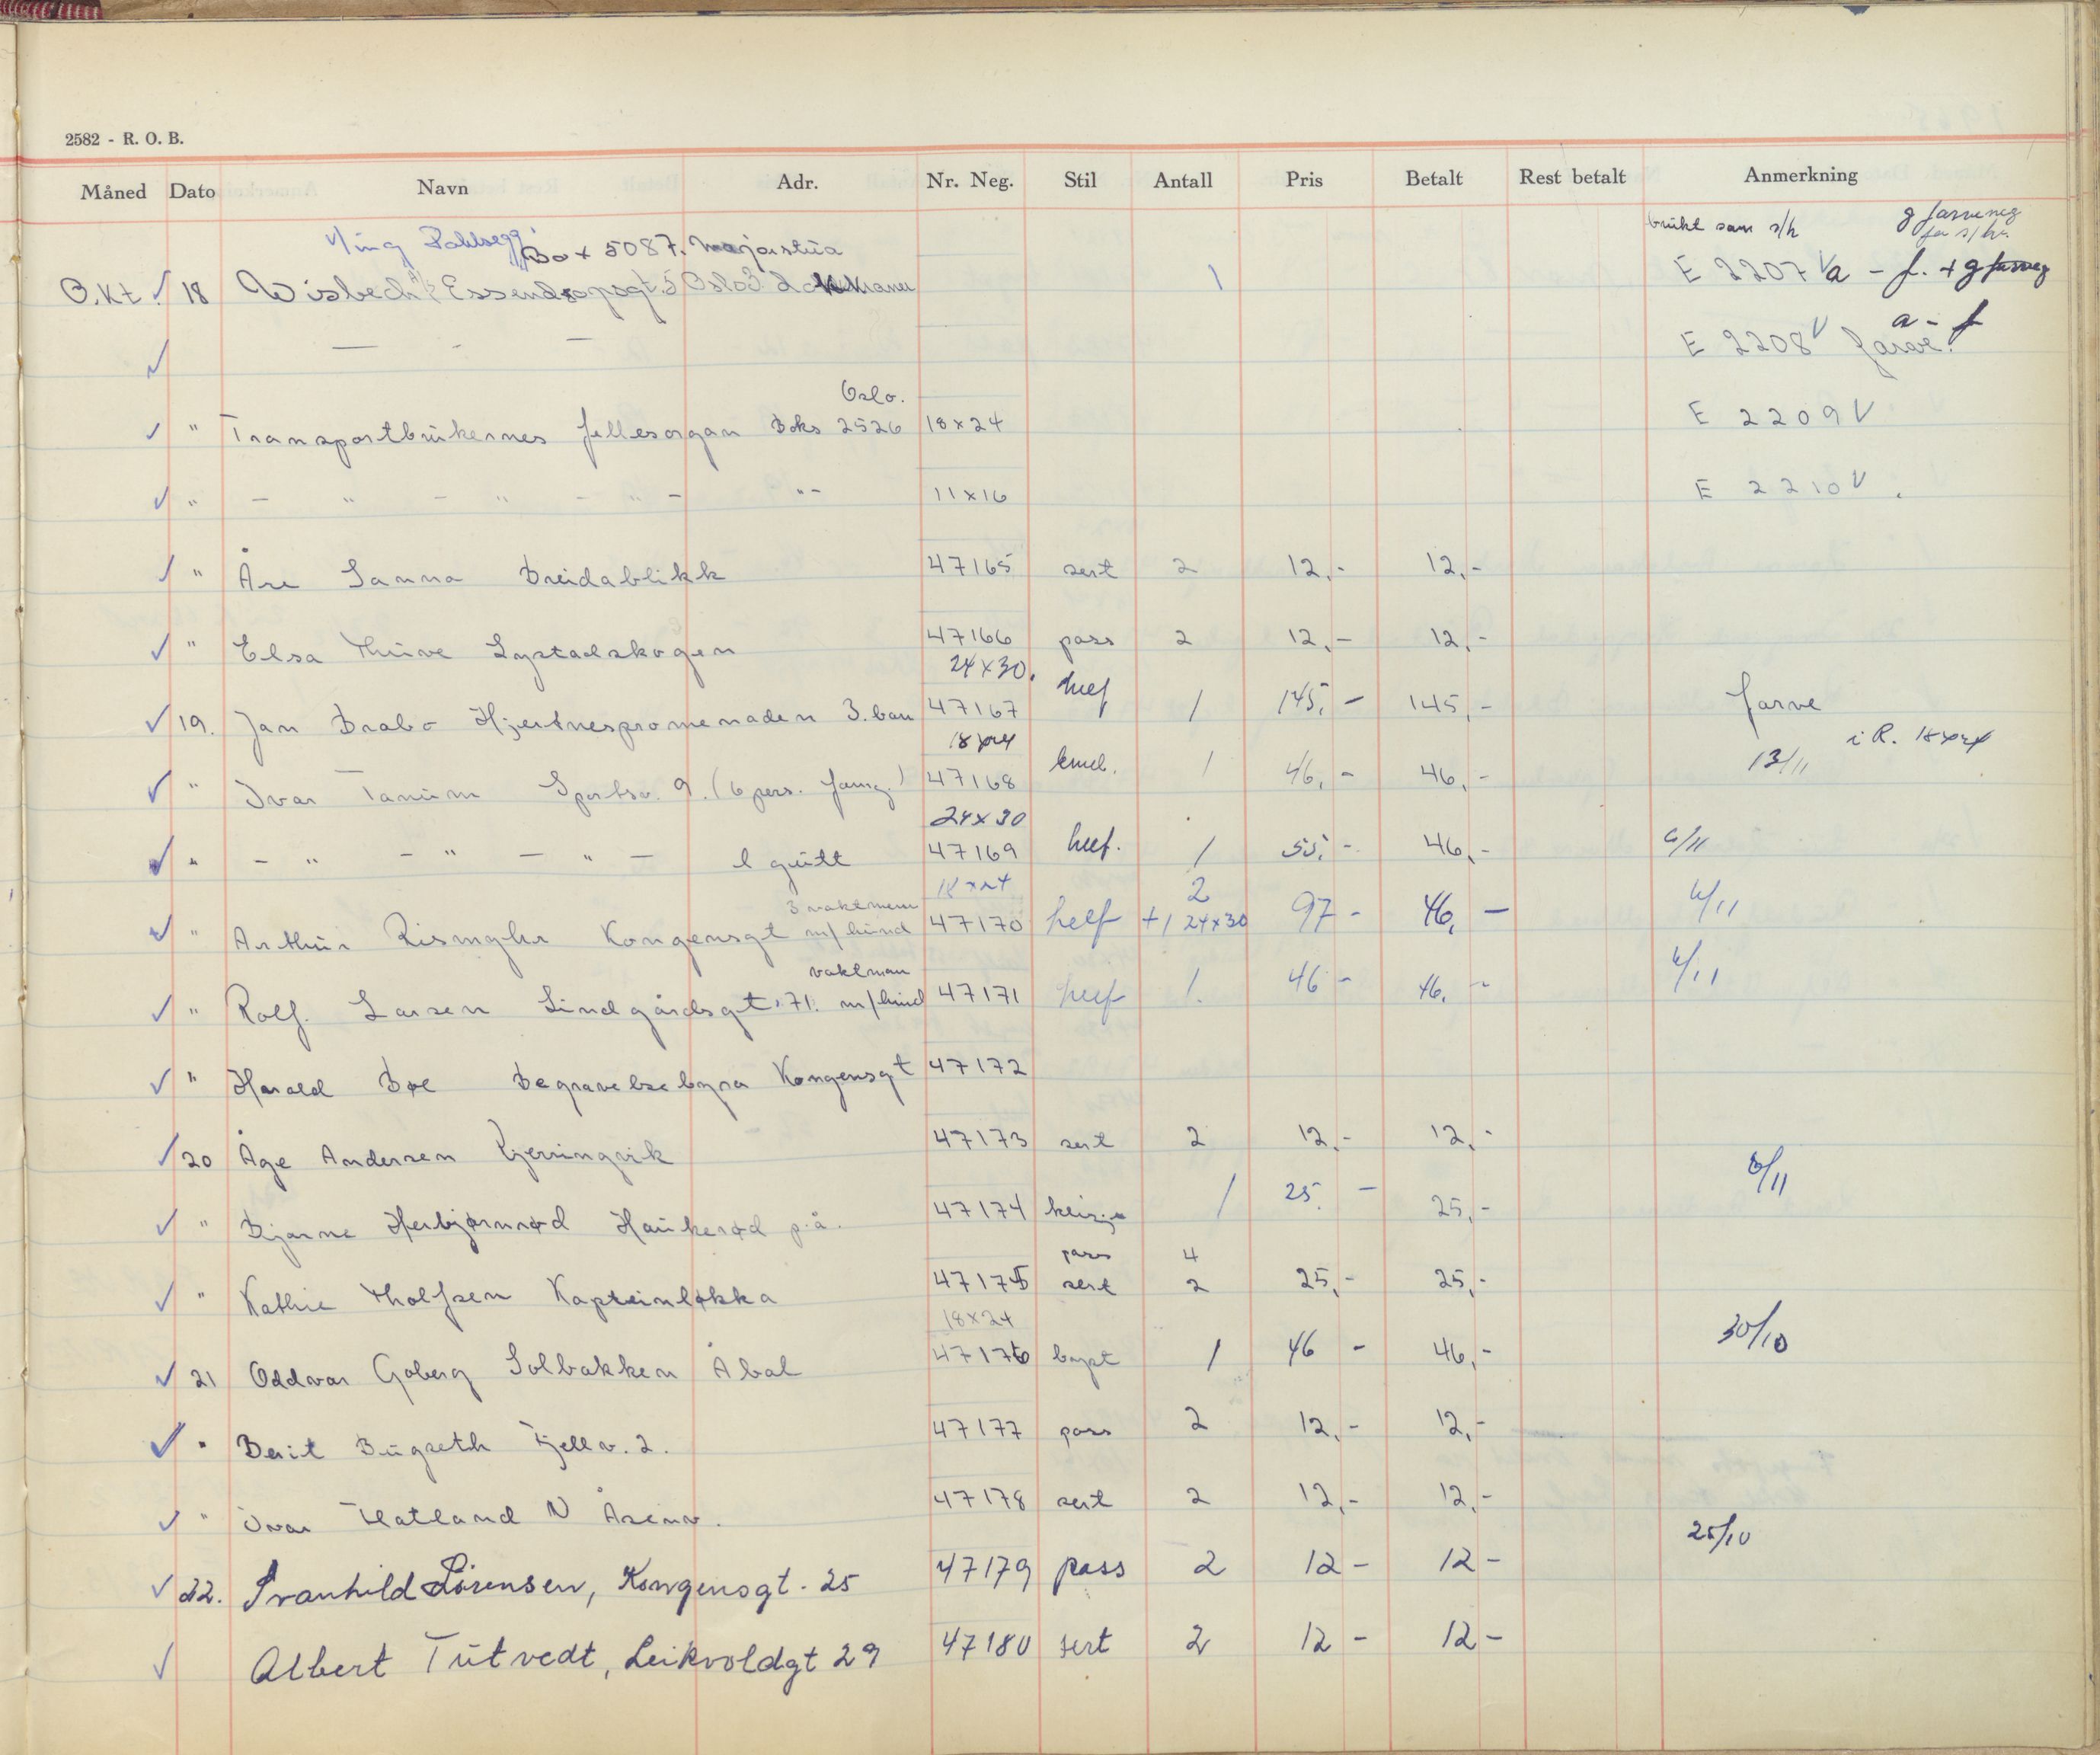 2582 - R. O. B.
Måned Dato Navn Adr. Nr. Neg. Stil Antall Pris Betalt Rest betalt Anmerkning
brukt som s/h
V/ing Box 5087. Majorstua
O.kt. 18 Wisbech Essendropsgt. 5 Oslo 3 1 E 2207 a - f. + g
a - f
E 2208 farve.
Oslo.
" Transportbrukernes fellesorgan Boks 2526 18x24 E 2209
" - " - " - " - " - 11x16 E 2210
" Åse Sanna Breidablikk 47165 sert 2 12,- 12,-
" Elsa Thuve Lystadskogen 47166 pass 2 12,- 12,-
24x30.
19. Jan Brabo Hjertnespromenaden 3. 47167 hel 1 145,- 145,- farve
18x24 i R. 18x24
" Ivar Tanum Sportsv. 9. (6 pers. ) 47168 1 46,- 46,- 13/11
24x30
" - " - " - " - 1 gutt 47169 1 55,- 46,- 6/11
18x24 2
3 vaktmenn
" Arthur Kongensgt m/hund 47170 helf +1 24x30 97 - 46,- 6/11
vaktman
" Rolf. Larsen Lindgårdsgt. 71. m/hund 47171 helf 1. 46 - 46,- 6/11
" Harald Bøe Begravelsebyra Kongensgt 47172
20 Åge Andersen Kjerringvik 47173 sert 2 12,- 12,-
" Bjarne Herbjørnrød Haukerød p.å. 47174 1 25. - 25,- 6/11
pass 4
" Kathie Tholfsen Kapteinløkka 47175 sert 2 25,- 25,-
18x24
21 Oddvar Goberg Solbakken Åbol 47176 byst 1 46 - 46,- 30/10
" Berit Bugseth Fjellv. 2. 47177 pass 2 12,- 12,-
" Ivar Hatland N Åsenv. 47178 sert 2 12,- 12,-
22. Svanhild Sørensen, Kongensgt. 25 47179 pass 2 12 - 12 - 25/10
Albert Tutvedt, Leikvoldgt 29 47180 sert 2 12 - 12 -